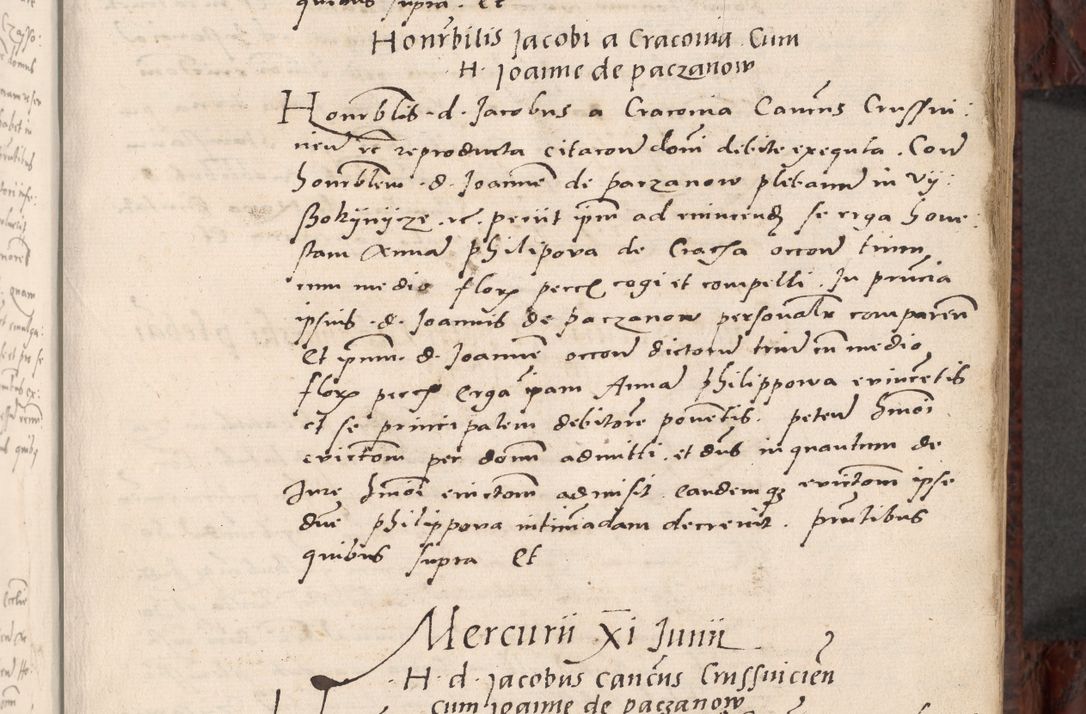 quibus supra. Et
Honrbilis Jacobi a Cracovia Cum
H. Joanne de paczanow
Honrblis. d. Jacobus a Cracovia Cancus Crussvi:
cien rc reproducta citacon domi debite exequta. Con
honrblem. d. Joannem de paczanow plebanum in Vy:
ßokynycze. rc. peciit ipm ad evincend se erga hone:
stam Annam philipova de Cracka occon trium
cum medio flor pecc cogi et compelli. In pnncia
ipsius. d. Joannis de paczanow personalr comparen
Et ipmm. d. Joannem occon dictorum trium cum medio
flor pecc Erga ipam Annam philippowa evincentis
et se principalem debitorem ponentis. peten hmoi
evictom per domi admitti. et dns inquantum de
Jure hmoi evictom admisit. Eandemq evictom ipse
dne philippova intimadam decrevit. pntibus
quibus supra Et
Mercurii Xi Junii
H. d. Jacobus cancus Crussvicien
cum joanne de paczanow